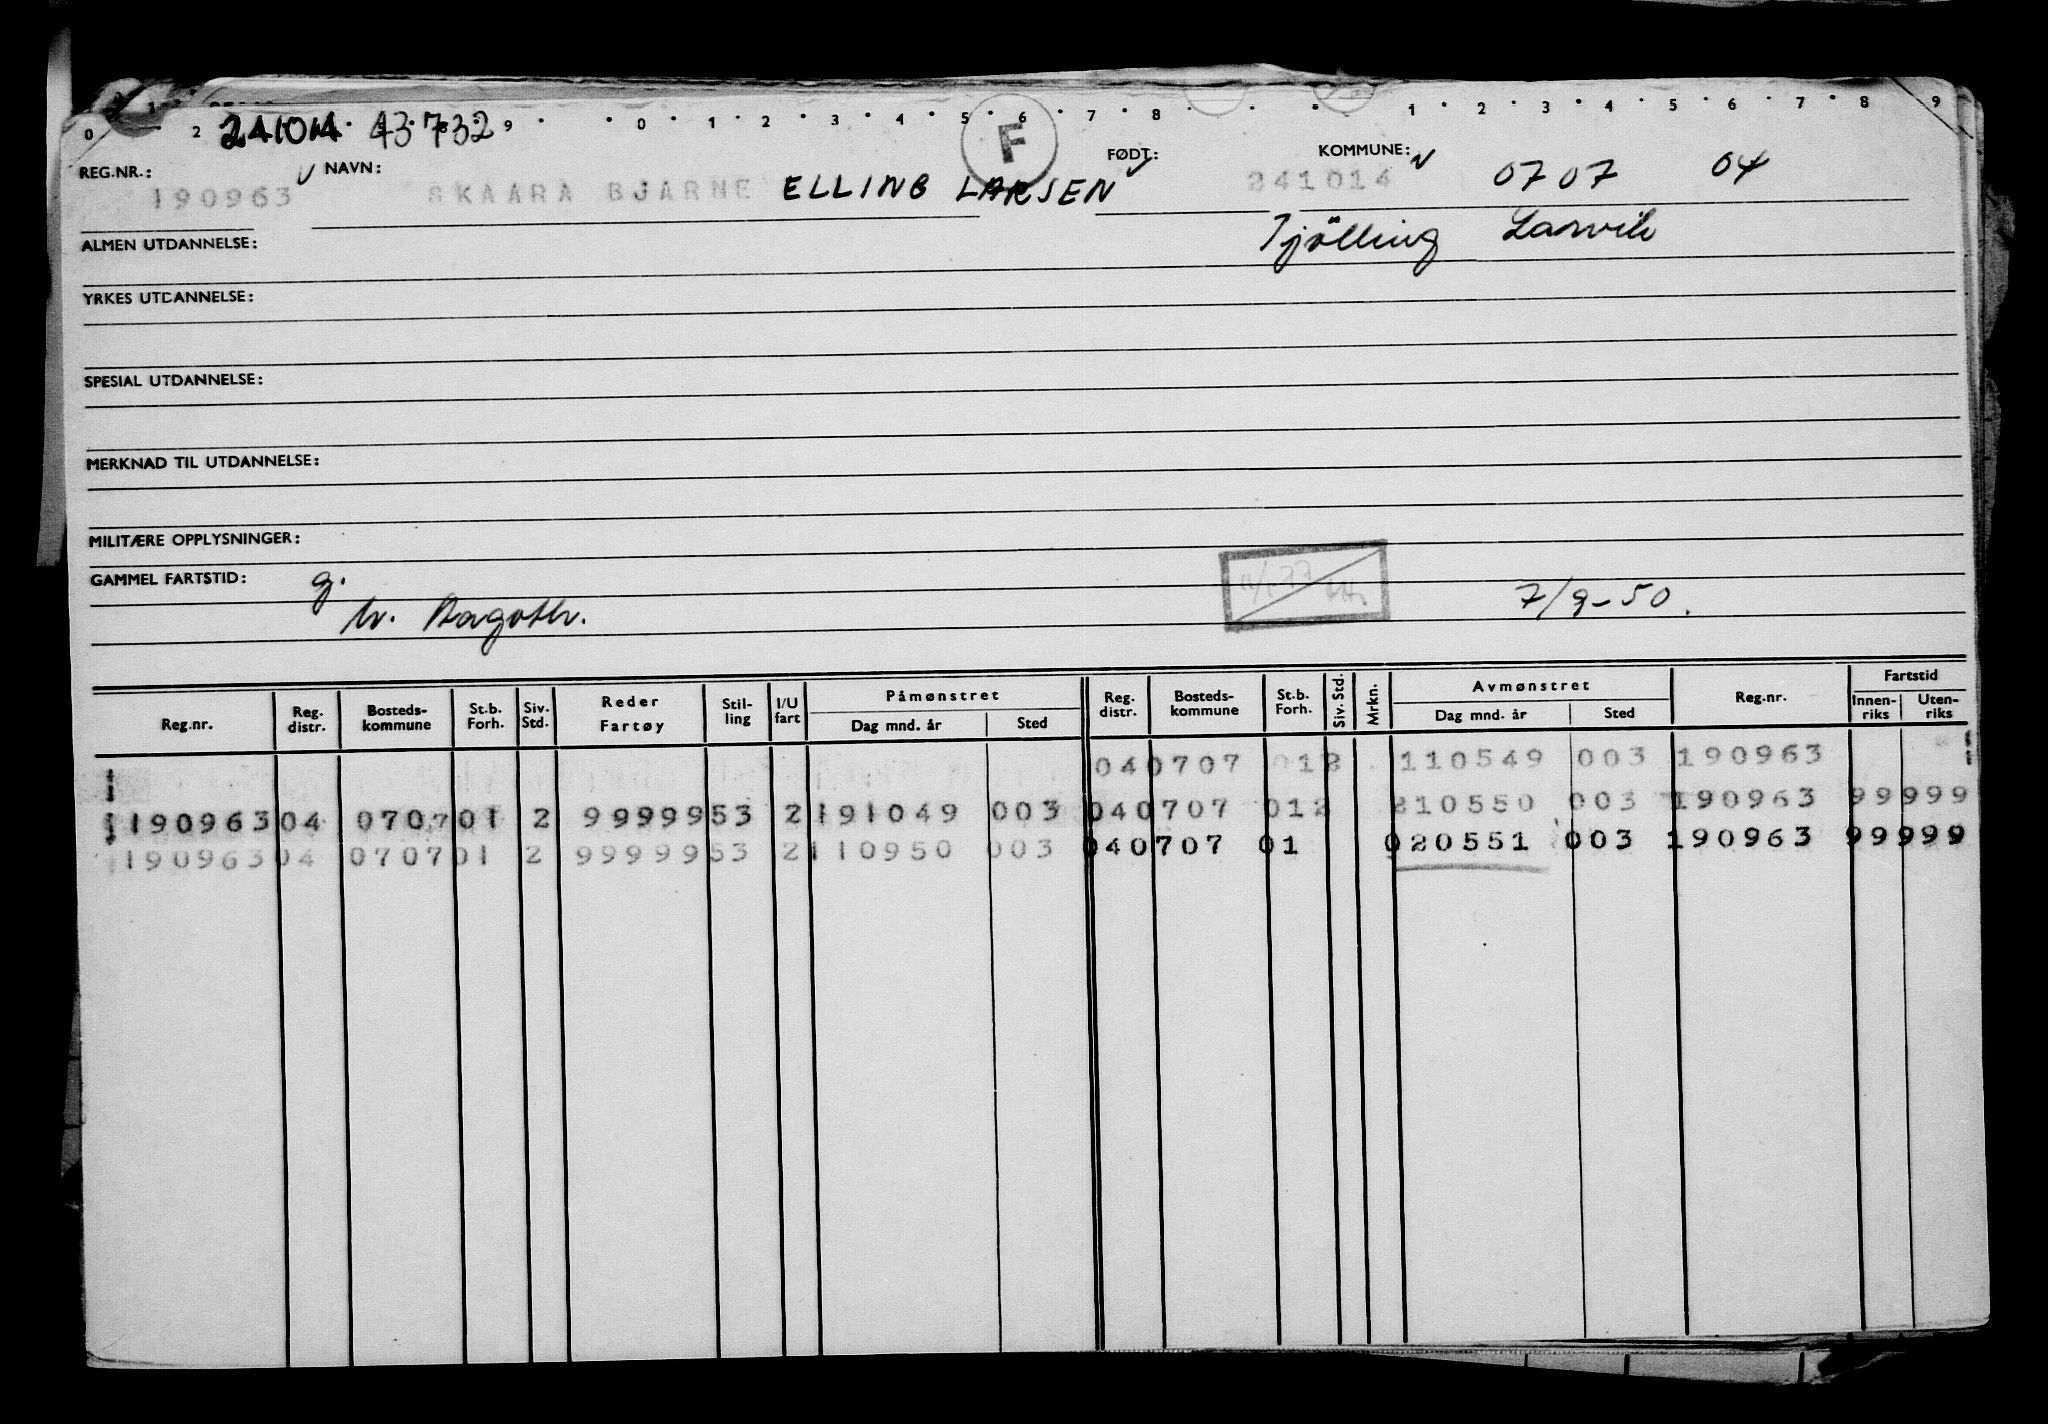 0 2 9 0 1 2 3 4 5 6 7 8 1 2 3 4 5 6 7 8 9
241014 43732
F
REG.NR.: NAVN: FØDT: KOMMUNE:
190963 SKAARA BJARNE ELLING LARSEN 241014 0707 04
ALMEN UTDANNELSE: Tjölling Larvik
YRKES UTDANNELSE:
SPESIAL UTDANNELSE:
MERKNAD TIL UTDANNELSE:
MILITÆRE OPPLYSNINGER:
GAMMEL FARTSTID: g.
7/9-50.
Reg.nr. Reg. distr. Bosteds-kommune St.b. Forh. Siv. Std. Reder Fartøy Stil-ling I/U fart Påmønstret Dag mnd. år Sted Reg. distr. Bosteds-kommune St.b. Forh. Siv. Std. Mrkn. Avmønstret Dag mnd. år Sted Reg.nr. Fartstid Innen-riks Uten-riks
040707 012 110549 003 190963
190963 04 0707 01 2 99999 53 2 191049 003 040707 012 210550 003 190963 99999
190963 04 0707 01 2 99999 53 2 110950 003 040707 01 020551 003 190963 99999